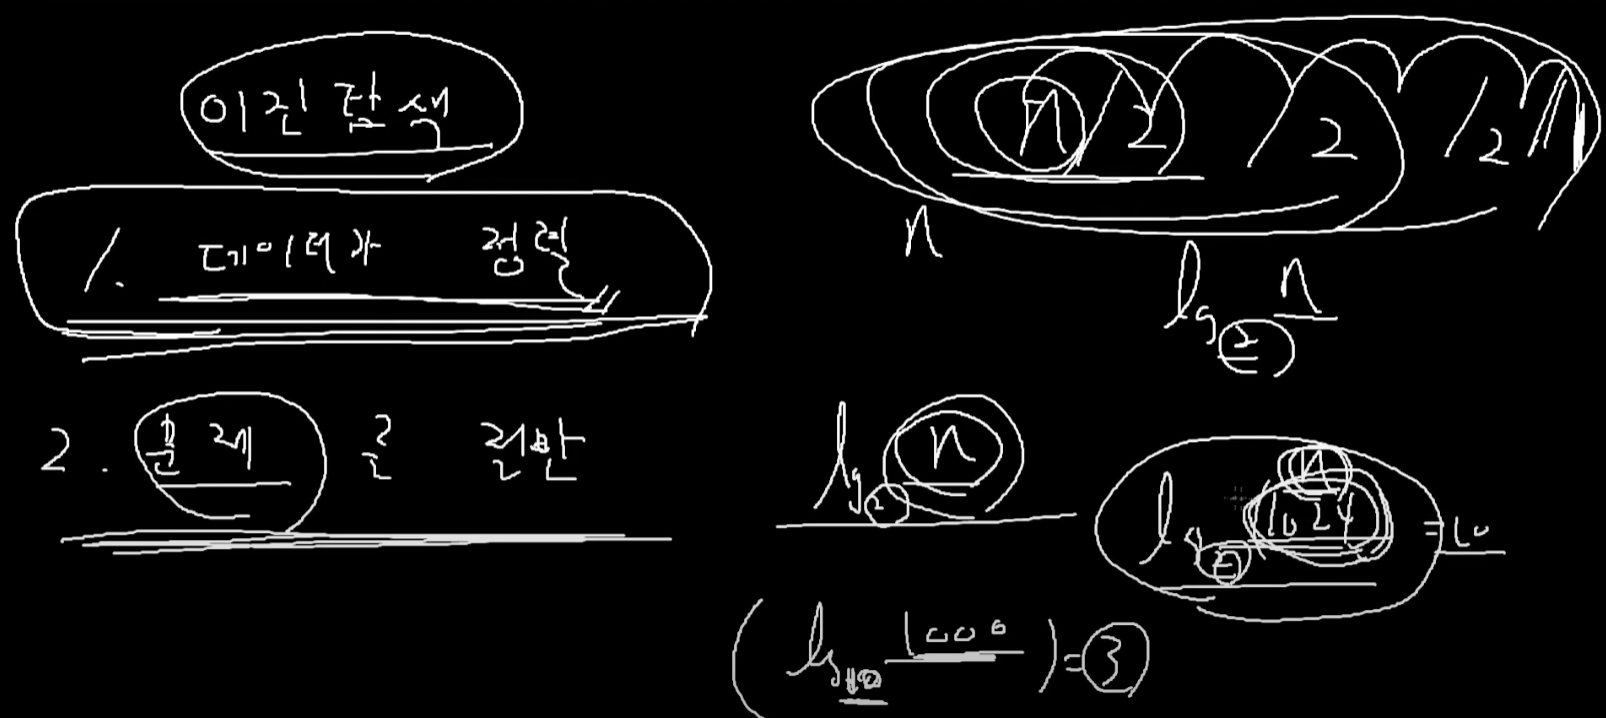 이진 탐색
1. 데이터가 정렬
2. 문제 를 절반
n/2/2/2
n
lg₂ n
lg₂ n
n
lg₂ 1024 = 10
(lg₁₀ 1000) = ③